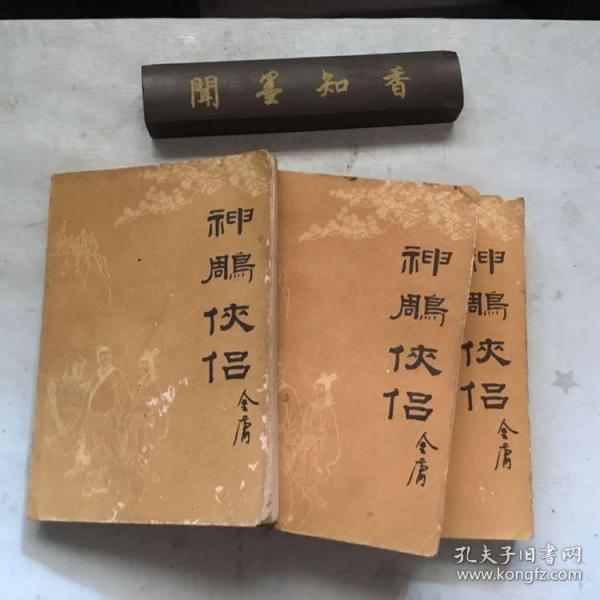 聞墨知香
神鵰俠侶
金庸
神鵰俠侶
金庸
神鵰俠侶
金庸
孔夫子旧书网
www.kongfz.com